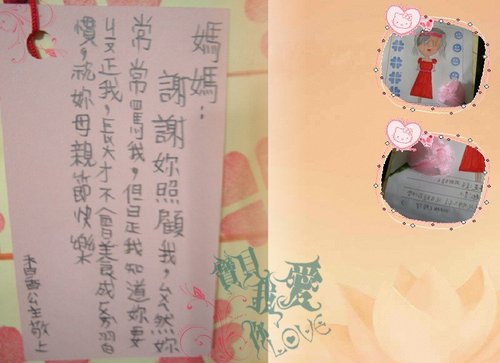 媽媽：
謝謝妳照顧我，然妳
常常罵我，但是我知道妳要
正我，長大才不會養成習
慣，祝妳母親節快樂
公主敬上
寶貝
我愛你
LOVE